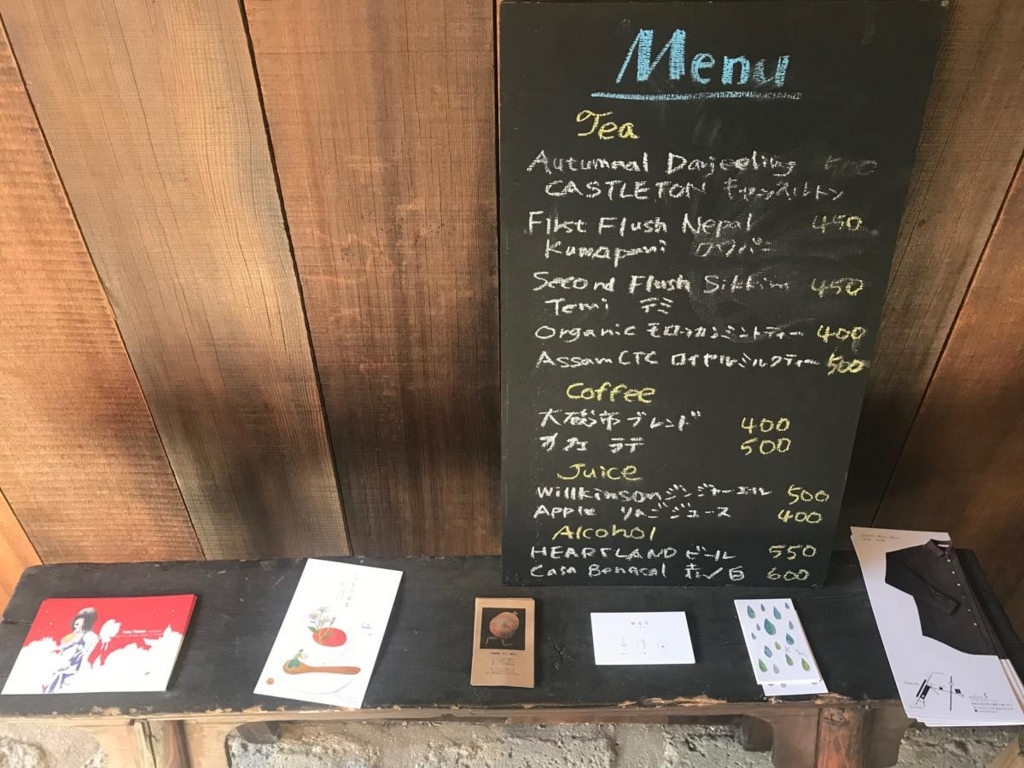 Menu
Tea
Autumnal Darjeeling 500
CASTLETON キャッスルトン
First Flush Nepal 450
Kuwapani クワパニ
Second Flush Sikkim 450
Temi テミ
Organic モロッカンミントティー 400
Assam CTC ロイヤルミルクティー 500
Coffee
大磯市ブレンド 400
カフェ ラテ 500
Juice
Willkinson ジンジャーエール 500
Apple りんごジュース 400
Alcohol
HEARTLAND ビール 550
Casa Benacal 赤/白 600